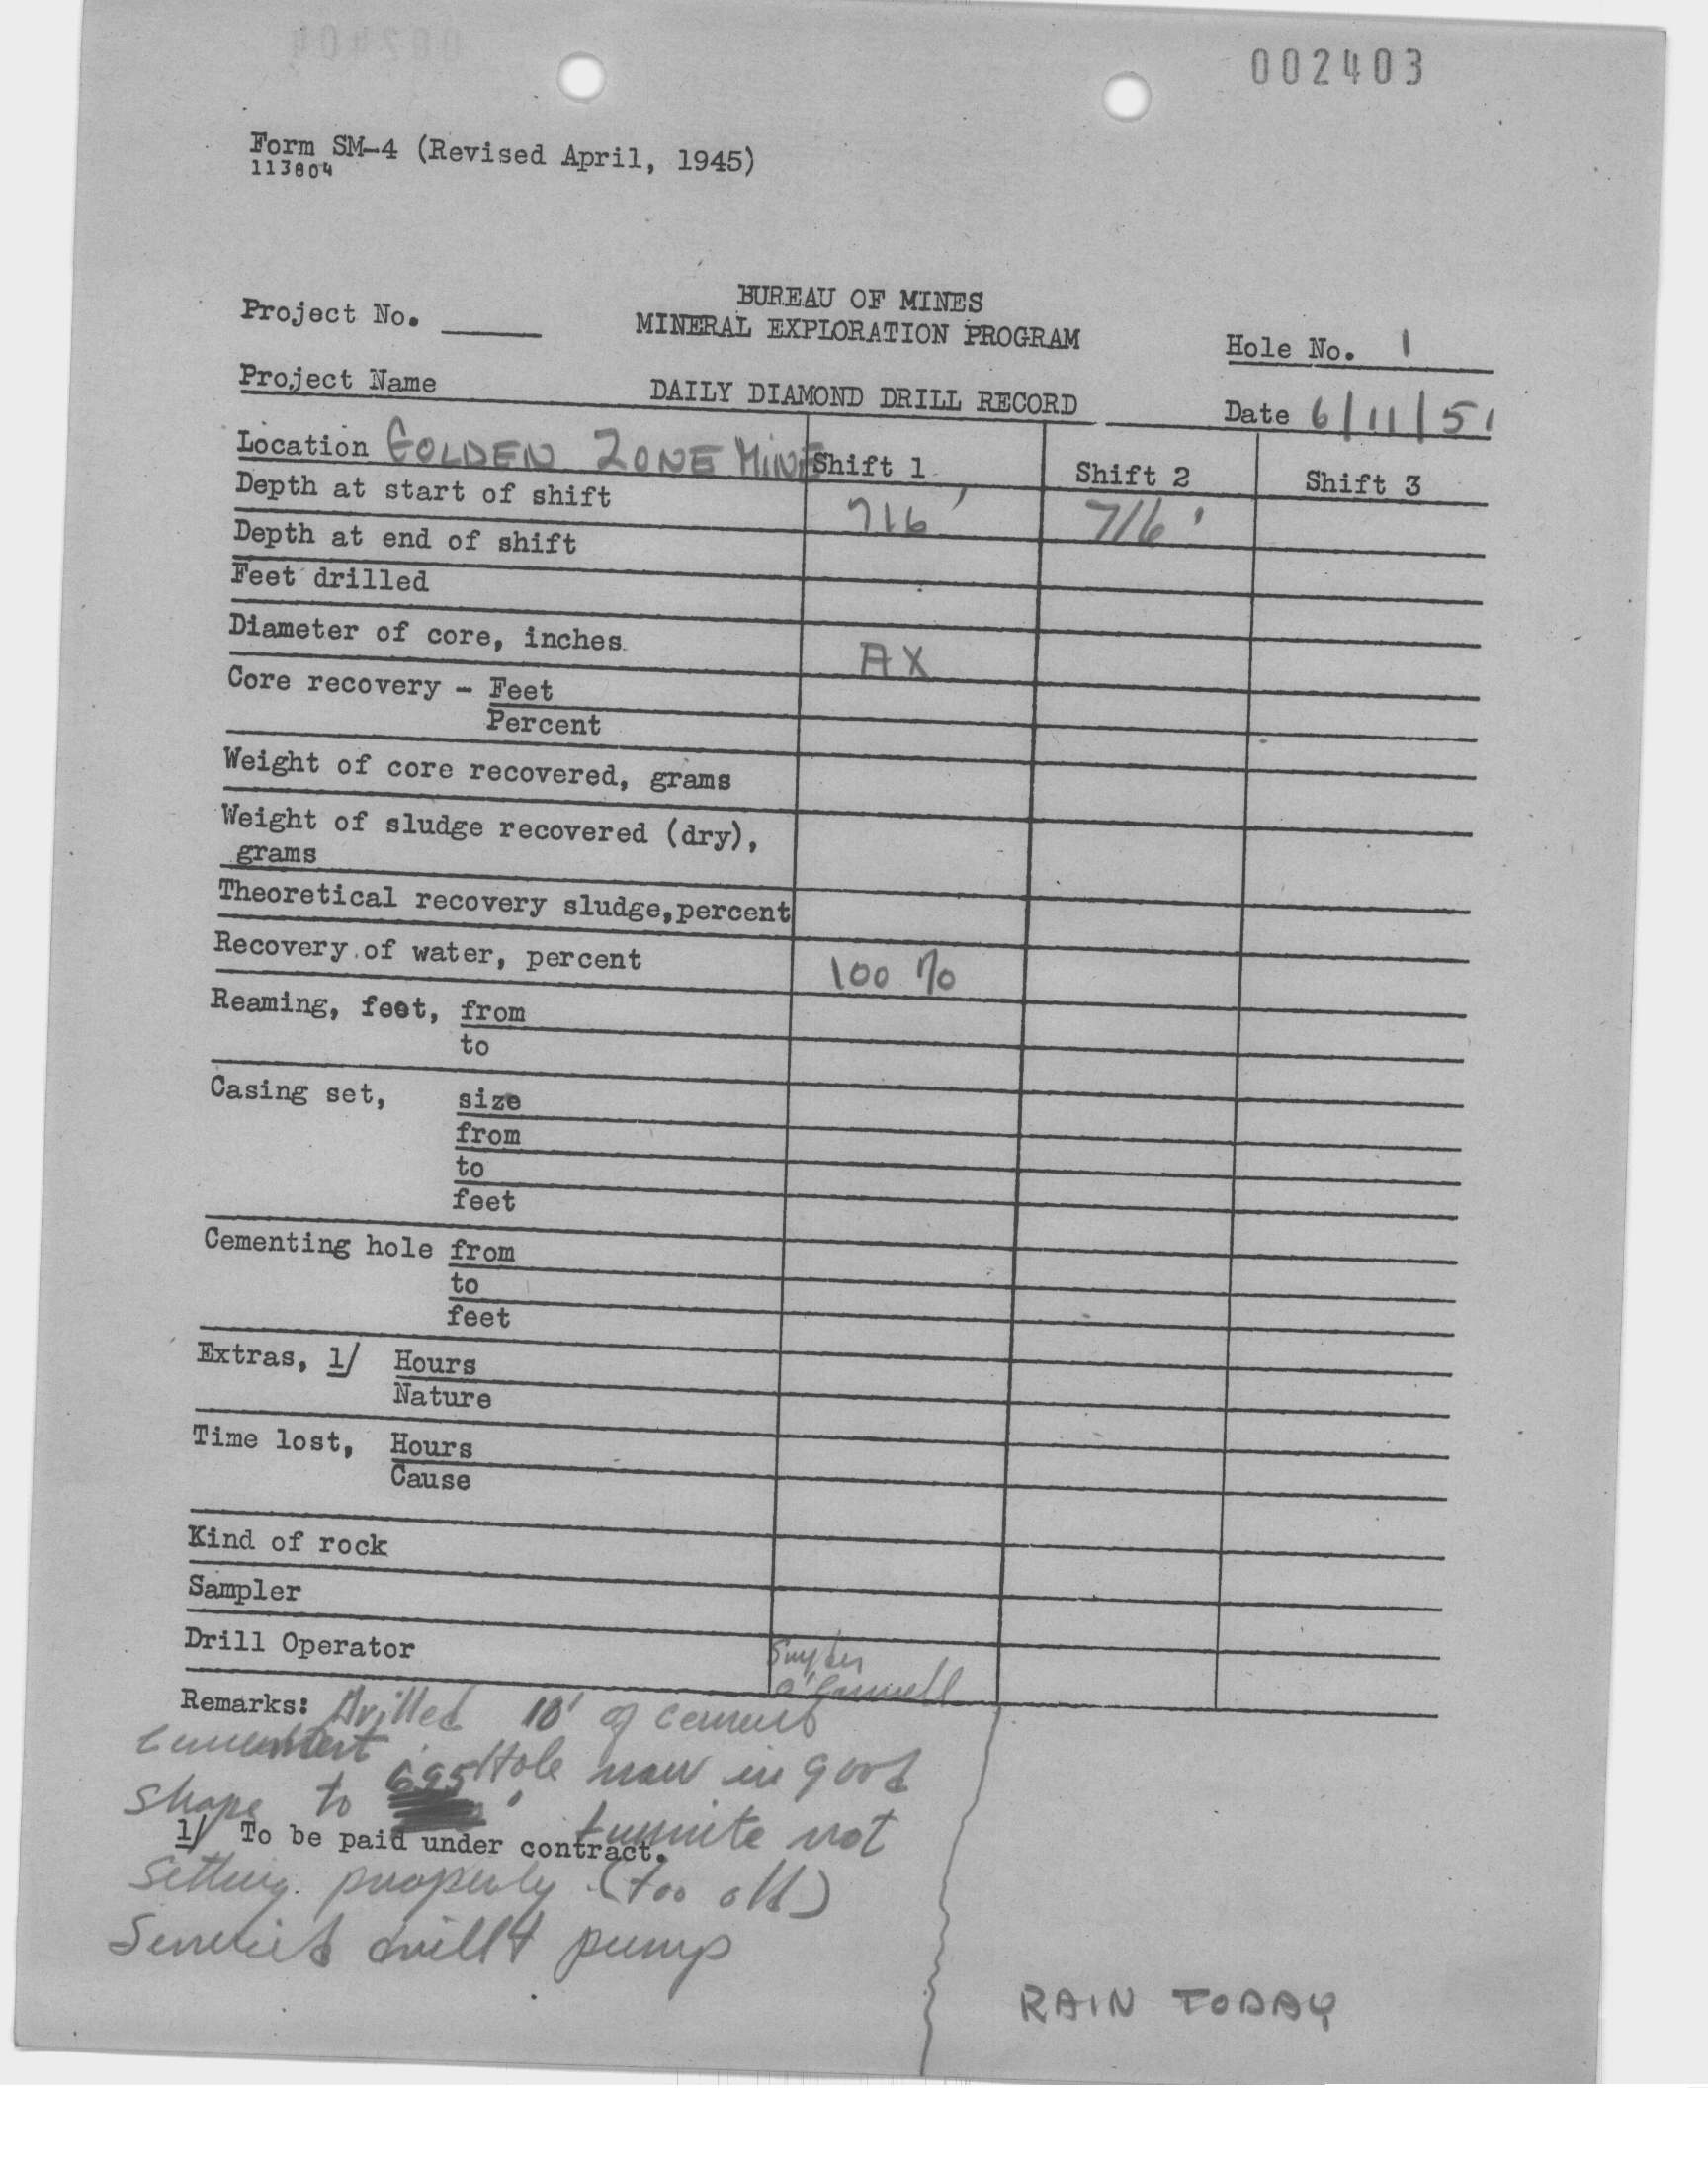 002403
Form SM-4 (Revised April, 1945)
113804
BUREAU OF MINES
Project No. _____ MINERAL EXPLORATION PROGRAM Hole No. 1
Project Name DAILY DIAMOND DRILL RECORD Date 6/11/51
Location GOLDEN ZONE MINE Shift 1 Shift 2 Shift 3
Depth at start of shift 716' 716'
Depth at end of shift
Feet drilled
Diameter of core, inches AX
Core recovery - Feet
Percent
Weight of core recovered, grams
Weight of sludge recovered (dry),
grams
Theoretical recovery sludge, percent
Recovery of water, percent 100 %
Reaming, feet, from
to
Casing set, size
from
to
feet
Cementing hole from
to
feet
Extras, 1/ Hours
Nature
Time lost, Hours
Cause
Kind of rock
Sampler
Drill Operator Snyder
O'Connell
Remarks: Drilled 10' of cement
Hole now in good
shape to 695' not
1/ To be paid under contract.
setting properly (too old)
drill & pump
RAIN TODAY